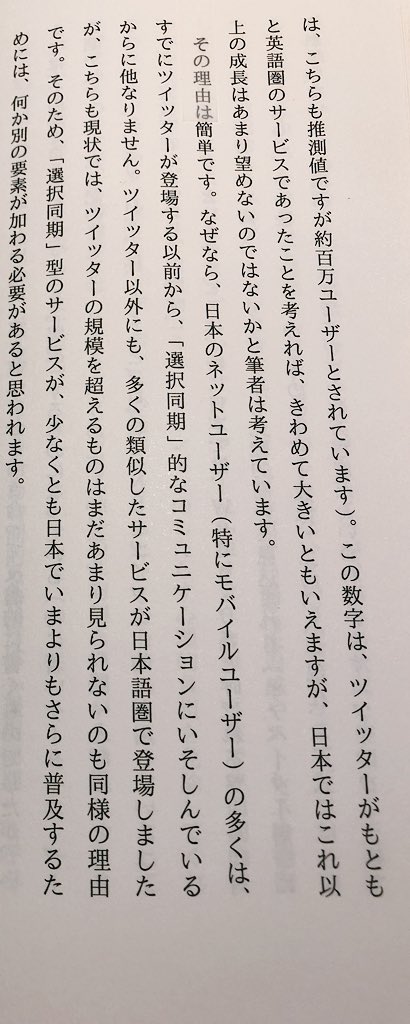 は、こちらも推測値ですが約百万ユーザーとされています）。この数字は、ツイッターがもとも
と英語圏のサービスであったことを考えれば、きわめて大きいともいえますが、日本ではこれ以
上の成長はあまり望めないのではないかと筆者は考えています。
その理由は簡単です。なぜなら、日本のネットユーザー（特にモバイルユーザー）の多くは、
すでにツイッターが登場する以前から、「選択同期」的なコミュニケーションにいそしんでいる
からに他なりません。ツイッター以外にも、多くの類似したサービスが日本語圏で登場しました
が、こちらも現状では、ツイッターの規模を超えるものはまだあまり見られないのも同様の理由
です。そのため、「選択同期」型のサービスが、少なくとも日本でいまよりもさらに普及するた
めには、何か別の要素が加わる必要があると思われます。